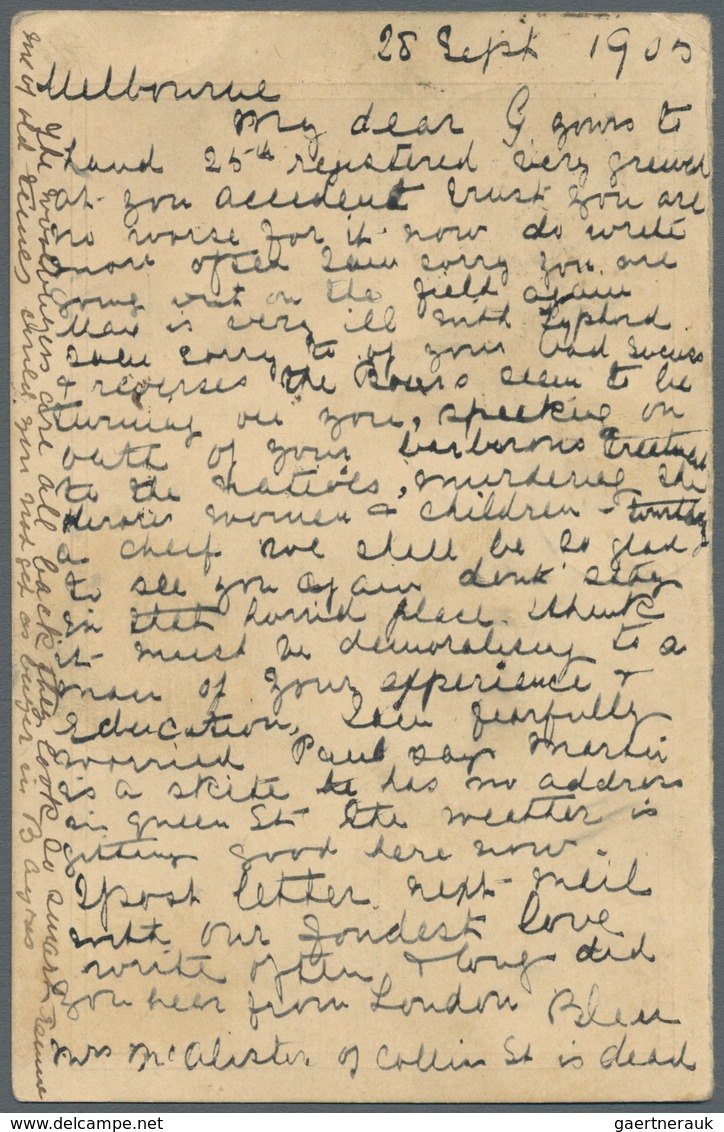 28 Sept 1905
Melbourne
My dear G yours to
hand 25th registered very grieved
at you accedent trust you are
no worse for it now do write
more often I am sorry you are
going out on the field again
Max is very ill with Typhoid
I am sorry to of your bad success
& reverses the Boers seem to be
turning on you, speeking on
oath of your barbarous treetment
to the natives, murdering the
women & children
a cheif we shell be so glad
to see you again dont stay
in that horrid place. I think
it must be demoralising to a
man of your experience &
Education, I am fearfully
worried Paul says Martin
is a skite he has no address
in queen St the weather is
getting good here now.
I post letter next mail
with our fondest love
write often & long did
you hear from London
Mrs McAlister of Collin St is dead
The are all back they look so smart
me of old times